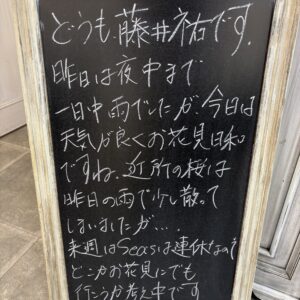 どうも、藤井祐です。
昨日は夜中まで
一日中雨でしたが、今日は
天気が良くお花見日和
ですね。近所の桜は
昨日の雨で少し散って
しまいましたが…
来週はSeasは連休なので
どこかお花見にでも
行こうか考え中です